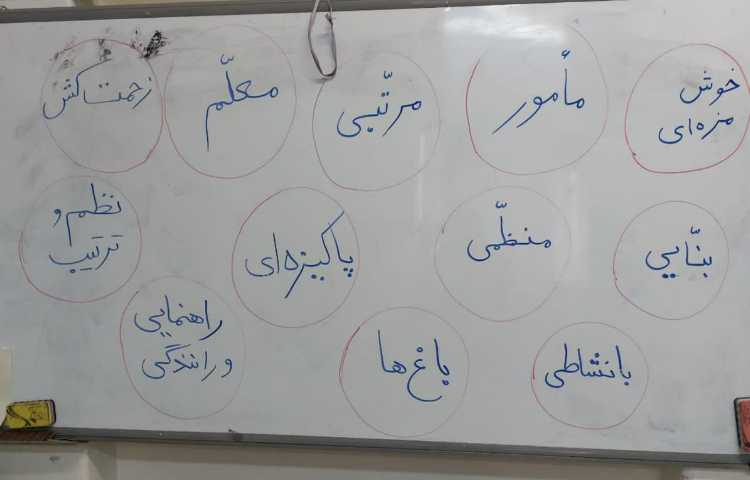 خوش
مزه‌ای
مأمور
مرتّبی
معلّم
زحمت‌کش
بنّایی
منظّمی
پاکیزه‌ای
نظم و
ترتیب
بانشاطی
باغ‌ها
راهنمایی
و رانندگی